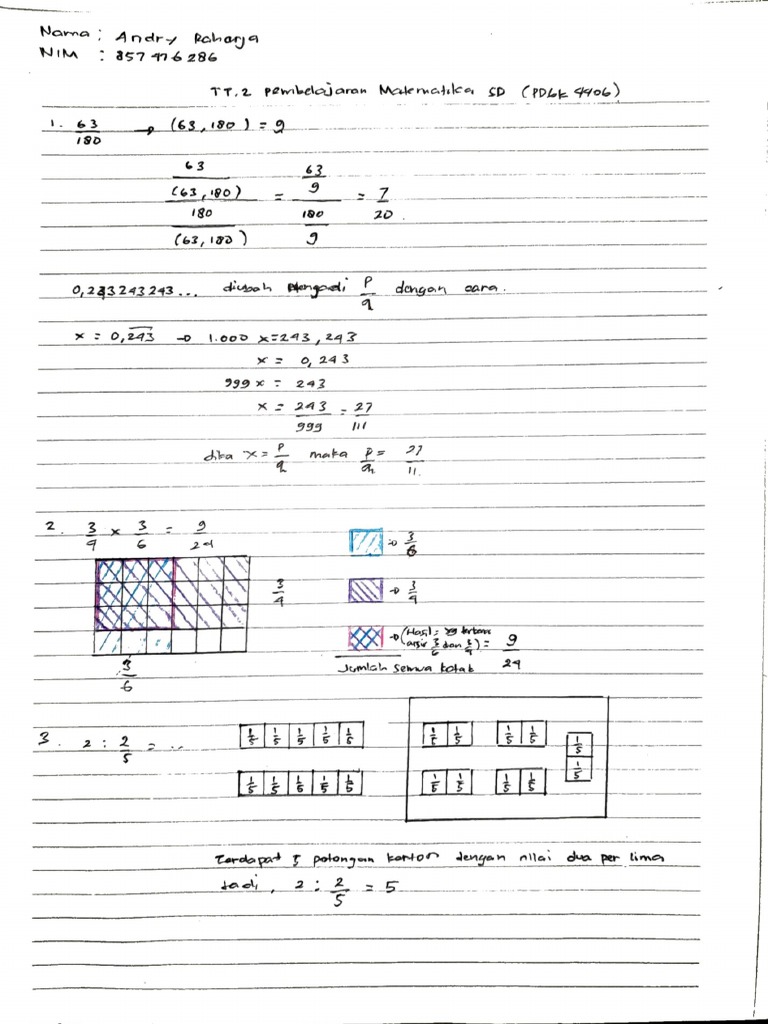 Nama : Andry Raharja
NIM : 857476286
TT.2 Pembelajaran Matematika SD (PDGK 4406)
1. 63/180 → (63, 180) = 9
63/(63, 180) / 180/(63, 180) = 63/9 / 180/9 = 7/20
0,243243243... diubah Mengadi p/q dengan cara.
x = 0,243 → 1.000 x = 243,243
x = 0,243
999 x = 243
x = 243/999 = 27/111
Jika x = p/q maka p/q = 27/11.
2. 3/4 x 3/6 = 9/24
→ 3/6
3/4
→ 3/4
→ (Hasil = arsir 3/6 dan 3/4) = 9/24
Jumlah semua kotak
3/6
3. 2 : 2/5 = ...
1/5 1/5 1/5 1/5 1/5
1/5 1/5 1/5 1/5 1/5
1/5 1/5 1/5 1/5 1/5
1/5 1/5 1/5 1/5 1/5
Terdapat 5 potongan karton dengan nilai dua per lima
Jadi, 2 : 2/5 = 5